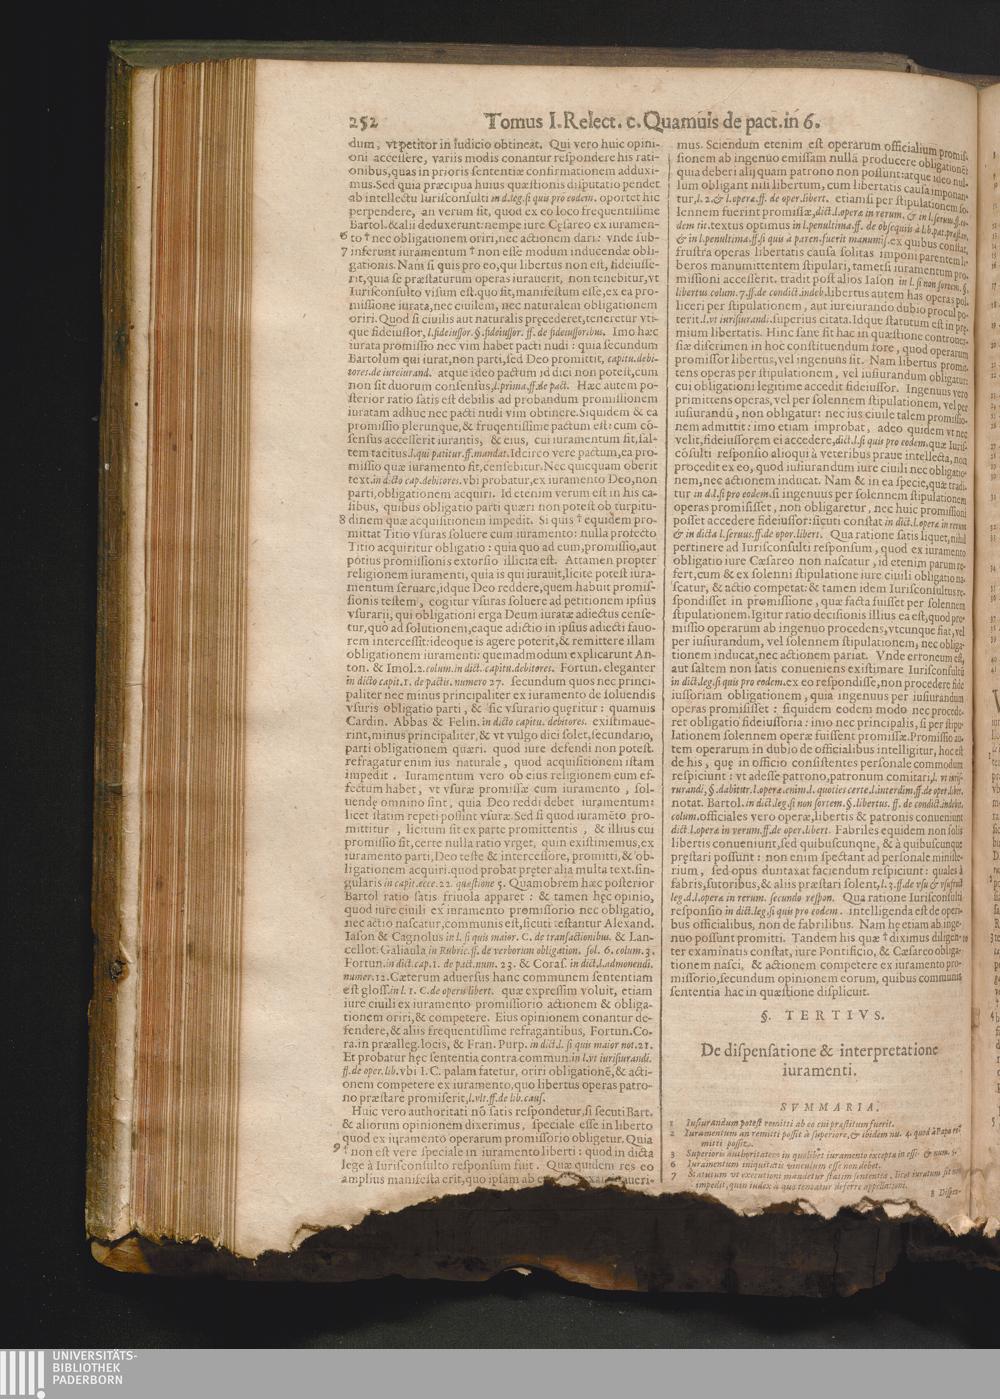 252 Tomus I. Relect. c. Quamuis de pact. in 6.
dum, vt petitor in Iudicio obtineat. Qui vero huic opini-
oni accessere, variis modis conantur respondere his rati-
onibus, quas in prioris sententiæ confirmationem adduxi-
mus. Sed quia præcipua huius quæstionis disputatio pendet
ab intellectu Iurisconsulti in d. leg. si quis pro eodem. oportet hic
perpendere, an verum sit, quod ex eo loco frequentissime
Bartol. & alii deduxerunt: nempe iure Cęsareo ex iuramen-
6 to † nec obligationem oriri, nec actionem dari: vnde sub-
7 inferunt iuramentum † non esse modum inducendæ obli-
gationis. Nam si quis pro eo, qui libertus non est, fideiusse-
rit, quia se præstaturum operas iurauerit, non tenebitur, vt
Iurisconsulto visum est. quo fit, manifestum esse, ex ea pro-
missione iurata, nec ciuilem, nec naturalem obligationem
oriri. Quod si ciuilis aut naturalis pręcederet, teneretur vti-
que fideiussor, l. fideiussor. §. fideiussor. ff. de fideiussoribus. Imo hæc
iurata promissio nec vim habet pacti nudi: quia secundum
Bartolum qui iurat, non parti, sed Deo promittit, capitu. debi-
tores. de iureiurand. atque ideo pactum id dici non potest, cum
non sit duorum consensus, l. prima. ff. de pact. Hæc autem po-
sterior ratio satis est debilis ad probandum promissionem
iuratam adhuc nec pacti nudi vim obtinere. Siquidem & ea
promissio plerunque, & fruqentissime pactum est: cum cō-
sensus accesserit iurantis, & eius, cui iuramentum fit, sal-
tem tacitus. l. qui patitur. ff. mandat. Idcirco vere pactum, ea pro-
missio quæ iuramento fit, censebitur. Nec quicquam oberit
text. in dicto cap. debitores. vbi probatur, ex iuramento Deo, non
parti, obligationem acquiri. Id etenim verum est in his ca-
sibus, quibus obligatio parti quæri non potest ob turpitu-
8 dinem quæ acquisitionem impedit. Si quis † equidem pro-
mittat Titio vsuras soluere cum iuramento: nulla profecto
Titio acquiritur obligatio: quia quo ad eum, promissio, aut
potius promissionis extorsio illicita est. Attamen propter
religionem iuramenti, quia is qui iurauit, licite potest iura-
mentum seruare, idque Deo reddere, quem habuit promis-
sionis testem, cogitur vsuras soluere ad petitionem ipsius
vsurarii, qui obligationi erga Deum iuratæ adiectus cense-
tur, quo ad solutionem, eaque adictio in ipsius adiecti fauo-
rem intercessit: ideoque is agere poterit, & remittere illam
obligationem iuramenti: quemadmodum explicarunt An-
ton. & Imol. 2. colum. in dict. capitu. debitores. Fortun. eleganter
in dicto capit. 1. de pactis. numero 27. secundum quos nec princi-
paliter nec minus principaliter ex iuramento de soluendis
vsuris obligatio parti, & sic vsurario quęritur: quamuis
Cardin. Abbas & Felin. in dicto capitu. debitores. existimaue-
rint, minus principaliter, & vt vulgo dici solet, secundario,
parti obligationem quæri. quod iure defendi non potest.
refragatur enim ius naturale, quod acquisitioneni istam
impedit. Iuramentum vero ob eius religionem eum ef-
fectum habet, vt vsuræ promissæ cum iuramento, sol-
uendę omnino sint, quia Deo reddi debet iuramentum:
licet statim repeti possint vsuræ. Sed si quod iuramēto pro-
mittitur, licitum sit ex parte promittentis, & illius cui
promissio fit, certe nulla ratio vrget, quin existimemus, ex
iuramento parti, Deo teste & intercessore, promitti, & ob-
ligationem acquiri. quod probat pręter alia multa text. sin-
gularis in capit. ecce. 22. quæstione 5. Quamobrem hæc posterior
Bartol ratio satis friuola apparet: & tamen hęc opinio,
quod iure ciuili ex iuramento promissorio nec obligatio,
nec actio nascatur, communis est, sicuti testantur Alexand.
Iason & Cagnolus in l. si quis maior. C. de transactionibus. & Lan-
cellot. Galiaula in Rubric. ff. de verborum obligation. fol. 6. colum. 3.
Fortun. in dict. cap. 1. de pact. num. 23. & Coras. in dict. l. admonendi.
numer. 12. Cæterum aduersus hanc communem sententiam
est gloss. in l. 1. C. de operis libert. quæ expressim voluit, etiam
iure ciuili ex iuramento promissorio actionem & obliga-
tionem oriri, & competere. Eius opinionem conantur de-
fendere, & aliis frequentissime refragantibus, Fortun. Co-
ra. in præalleg. locis, & Fran. Purp. in dict. l. si quis maior not. 21.
Et probatur hęc sententia contra commun. in l. vt iurisiurandi.
ff. de oper. lib. vbi I.C. palam fatetur, oriri obligationē, & acti-
onem competere ex iuramento, quo libertus operas patro-
no præstare promiserit, l. vlt. ff. de lib. caus.
Huic vero authoritati nō satis respondetur, si secuti Bart.
& aliorum opinionem dixerimus, speciale esse in liberto
quod ex iuramento operarum promissorio obligetur. Quia
9 † non est vere speciale in iuramento liberti: quod in dicta
lege à Iurisconsulto responsum fuit. Quæ quidem res eo
amplius manifesta erit, quo ipsam ab
mus. Sciendum etenim est operarum officialium promis-
sionem ab ingenuo emissam nullā producere obligationē:
quia deberi alij quam patrono non possunt: atque ideo nul-
lum obligant nisi libertum, cum libertatis causa imponan-
tur, l. 2. & l. operæ. ff. de oper. libert. etiamsi per stipulationem so-
lennem fuerint promissæ, dict. l. operæ in rerum. & in l. seruus. ff. eo-
dem tit. textus optimus in l. penultima. ff. de obsequiis à lib. pat. præstan.
& in l. penultima. ff. si quis à paren. fuerit manumis. ex quibus constat,
frustra operas libertatis causa solitas imponi parentem li-
beros manumittentem stipulari, tametsi iuramentum pro-
missioni accesserit. tradit post alios Iason in l. si non sortem. §.
libertus colum. 7. ff. de condict. indeb. libertus autem has operas pol-
liceri per stipulationem, aut iureiurando dubio procul po-
terit. l. vt iurisiurandi. superius citata. Idque statutum est in præ-
mium libertatis. Hinc sane fit hac in quæstione controuer-
siæ discrimen in hoc constituendum fore, quod operarum
promissor libertus, vel ingenuus sit. Nam libertus promit-
tens operas per stipulationem, vel iusiurandum obligatur:
cui obligationi legitime accedit fideiussor. Ingenuus vero
primittens operas, vel per solennem stipulationem, vel per
iusiurandū, non obligatur: nec ius ciuile talem promissio-
nem admittit: imo etiam improbat, adeo quidem vt nec
velit, fideiussorem ei accedere, dict. l. si quis pro eodem. quæ Iuris-
cōsulti responsio alioqui à veteribus praue intellecta, non
procedit ex eo, quod iusiurandum iure ciuili nec obligatio-
nem, nec actionem inducat. Nam & in ea specie, quæ tradi-
tur in d. l. si pro eodem. si ingenuus per solennem stipulationem
operas promisisset, non obligaretur, nec huic promissioni
posset accedere fideiussor: sicuti constat in dict. l. operæ in rerum
& in dicta l. seruus. ff. de oper. libert. Qua ratione satis liquet, nihil
pertinere ad Iurisconsulti responsum, quod ex iuramento
obligatio iure Cæsareo non nascatur, id etenim parum re-
fert, cum & ex solenni stipulatione iure ciuili obligatio na-
scatur, & actio competat: & tamen idem Iurisconsultus re-
spondisset in promissione, quæ facta fuisset per solennem
stipulationem. Igitur ratio decisionis illius ea est, quod pro-
missio operarum ab ingenuo procedens, vtcunque fiat, vel
per iusiurandum, vel solennem stipulationem, nec obliga-
tionem inducat, nec actionem pariat. Vnde erroneum est,
aut saltem non satis conueniens existimare Iurisconsultū
in dict. leg. si quis pro eodem. ex eo respondisse, non procedere fide
iussoriam obligationem, quia ingenuus per iusiurandum
operas promisisset: siquidem eodem modo nec procede-
ret obligatio fideiussoria: imo nec principalis, si per stipu-
lationem solennem operæ fuissent promissæ. Promissio au-
tem operarum in dubio de officialibus intelligitur, hoc est
de his, quę in officio consistentes personale commodum
respiciunt: vt adesse patrono, patronum comitari, l. vt iurisi-
urandi, §. dabitur. l. operæ. enim. l. quoties certe. l. interdim. ff. de oper. liber.
notat. Bartol. in dict. leg. si non sortem. §. libertus. ff. de condict. indebit.
colum. officiales vero operæ, libertis & patronis conueniunt
dict. l. operæ in verum. ff. de oper. libert. Fabriles equidem non solis
libertis conueniunt, sed quibuscunqne, & à quibuscunque
pręstari possunt: non enim spectant ad personale ministe-
rium, sed opus duntaxat faciendum respiciunt: quales à
fabris, sutoribus, & aliis præstari solent, l. 3. ff. de vsu & vsufruct
leg. d. l. operæ in rerum. secundo respon. Qua ratione Iurisconsulti
responsio in dict. leg. si quis pro eodem. intelligenda est de oper-
bus officialibus, non de fabrilibus. Nam hę etiam ab inge-
nuo possunt promitti. Tandem his quæ † diximus diligen- 10
ter examinatis constat, iure Pontificio, & Cæsareo obliga-
tionem nasci, & actionem competere ex iuramento pro-
missorio, secundum opinionem eorum, quibus communis
sententia hac in quæstione displicuit.
§. TERTIVS.
De dispensatione & interpretatione
iuramenti.
SVMMARIA.
1 Iusiurandum potest remitti ab eo cui præstitum fuerit.
2 Iuramentum an remitti possit à superiore, & ibidem nu. 4. quod à Papa re-
mitti possit.
3 Superioris authoritatem in quolibet iuramento exceptā in esse. & num. 5.
6 Iuramentum iniquitatis vinculum esse non debet.
7 Statutum vt executioni mandetur statim sententia, licet iuratum sit non
impedit, quin iudex à quo teneatur deferre appellationi.
8 Dispen-
UNIVERSITÄTS-
BIBLIOTHEK
PADERBORN